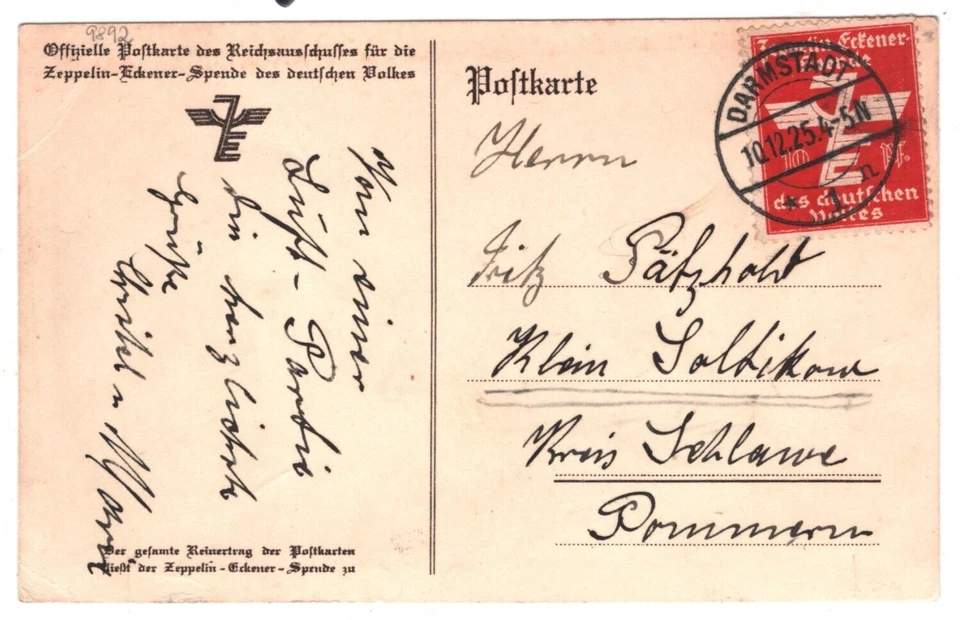 9892
Offizielle Postkarte des Reichsausschusses für die
Zeppelin-Eckener-Spende des deutschen Volkes
ZE
Von einer
Luft-Partie
die herzlichste
Grüße
Der gesamte Reinertrag der Postkarten
fließt der Zeppelin-Eckener-Spende zu
Postkarte
Herrn
Fritz Pätzholdt
Klein Soltikow
Kreis Schlawe
Pommern
Zeppelin-Eckener-
Spende
10 M.
des deutschen
Volkes
DARMSTADT
10.12.25.4-5N
* 1 n